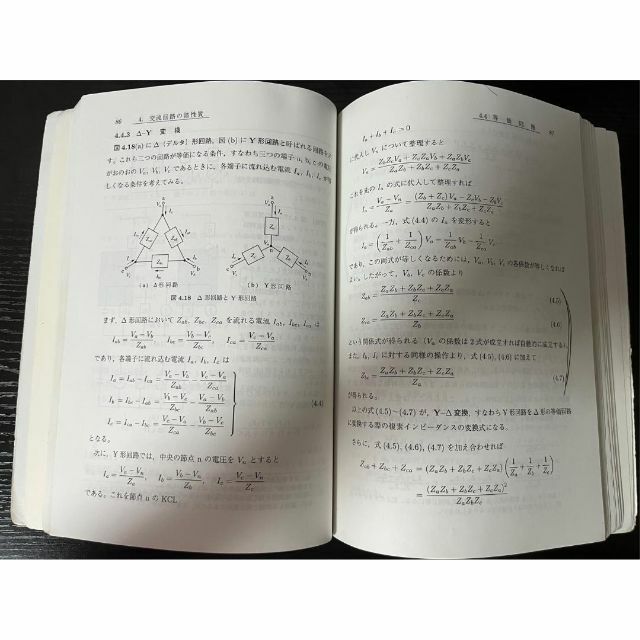 86 4. 交流回路の諸性質
4.4.3 Δ-Y 変換
図4.18(a)に Δ (デルタ) 形回路, 図(b)に Y 形回路と呼ばれる回路を示
す。これら三つの回路が等価になる条件, すなわち三つの端子 a, b, c の電圧
がおのおの Va, Vb, Vc であるときに, 各端子に流れ込む電流 Ia, Ib, Ic が等
しくなる条件を考えてみる。
(a) Δ形回路 (b) Y形回路
図4.18 Δ形回路とY形回路
まず, Δ形回路において Zab, Zbc, Zca を流れる電流 Iab, Ibc, Ica は
Iab = (Va − Vb)/Zab, Ibc = (Vb − Vc)/Zbc, Ica = (Vc − Va)/Zca
であり, 各端子に流れ込む電流 Ia, Ib, Ic は
(4.4)
となる。
次に, Y形回路では, 中央の節点 n の電圧を Vn とすると
Ia = (Va − Vn)/Za, Ib = (Vb − Vn)/Zb, Ic = (Vc − Vn)/Zc
である。これを節点 n の KCL
4.4 等価回路 87
に代入し Vn について整理すると
Vn = (ZbZcVa + ZcZaVb + ZaZbVc)/(ZaZb + ZbZc + ZcZa)
これを先の Ia の式に代入して整理すれば
が得られる。一方, 式(4.4)の Ia を変形すると
Ia = (1/Zab + 1/Zca) Va − 1/Zab Vb − 1/Zca Vc
であり, この両式が等しくなるためには, Va, Vb, Vc の各係数が等しくなれば
よい。したがって, Vb, Vc の係数より
Zab = (ZaZb + ZbZc + ZcZa)/Zc (4.5)
Zca = (ZaZb + ZbZc + ZcZa)/Zb (4.6)
という関係式が得られる (Va の係数は2式が成立すれば自動的に成立する)。
また, Ib, Ic に対する同様の操作より, 式(4.5), (4.6)に加えて
Zbc = (ZaZb + ZbZc + ZcZa)/Za (4.7)
が得られる。
以上の式(4.5)~(4.7)が, Y-Δ変換, すなわちY形回路をΔ形の等価回路
に変換する際の複素インピーダンスの変換式になる。
さらに, 式(4.5), (4.6), (4.7)を加え合わせれば
Zab + Zbc + Zca = (ZaZb + ZbZc + ZcZa)(1/Za + 1/Zb + 1/Zc)
= (ZaZb + ZbZc + ZcZa)²/ZaZbZc